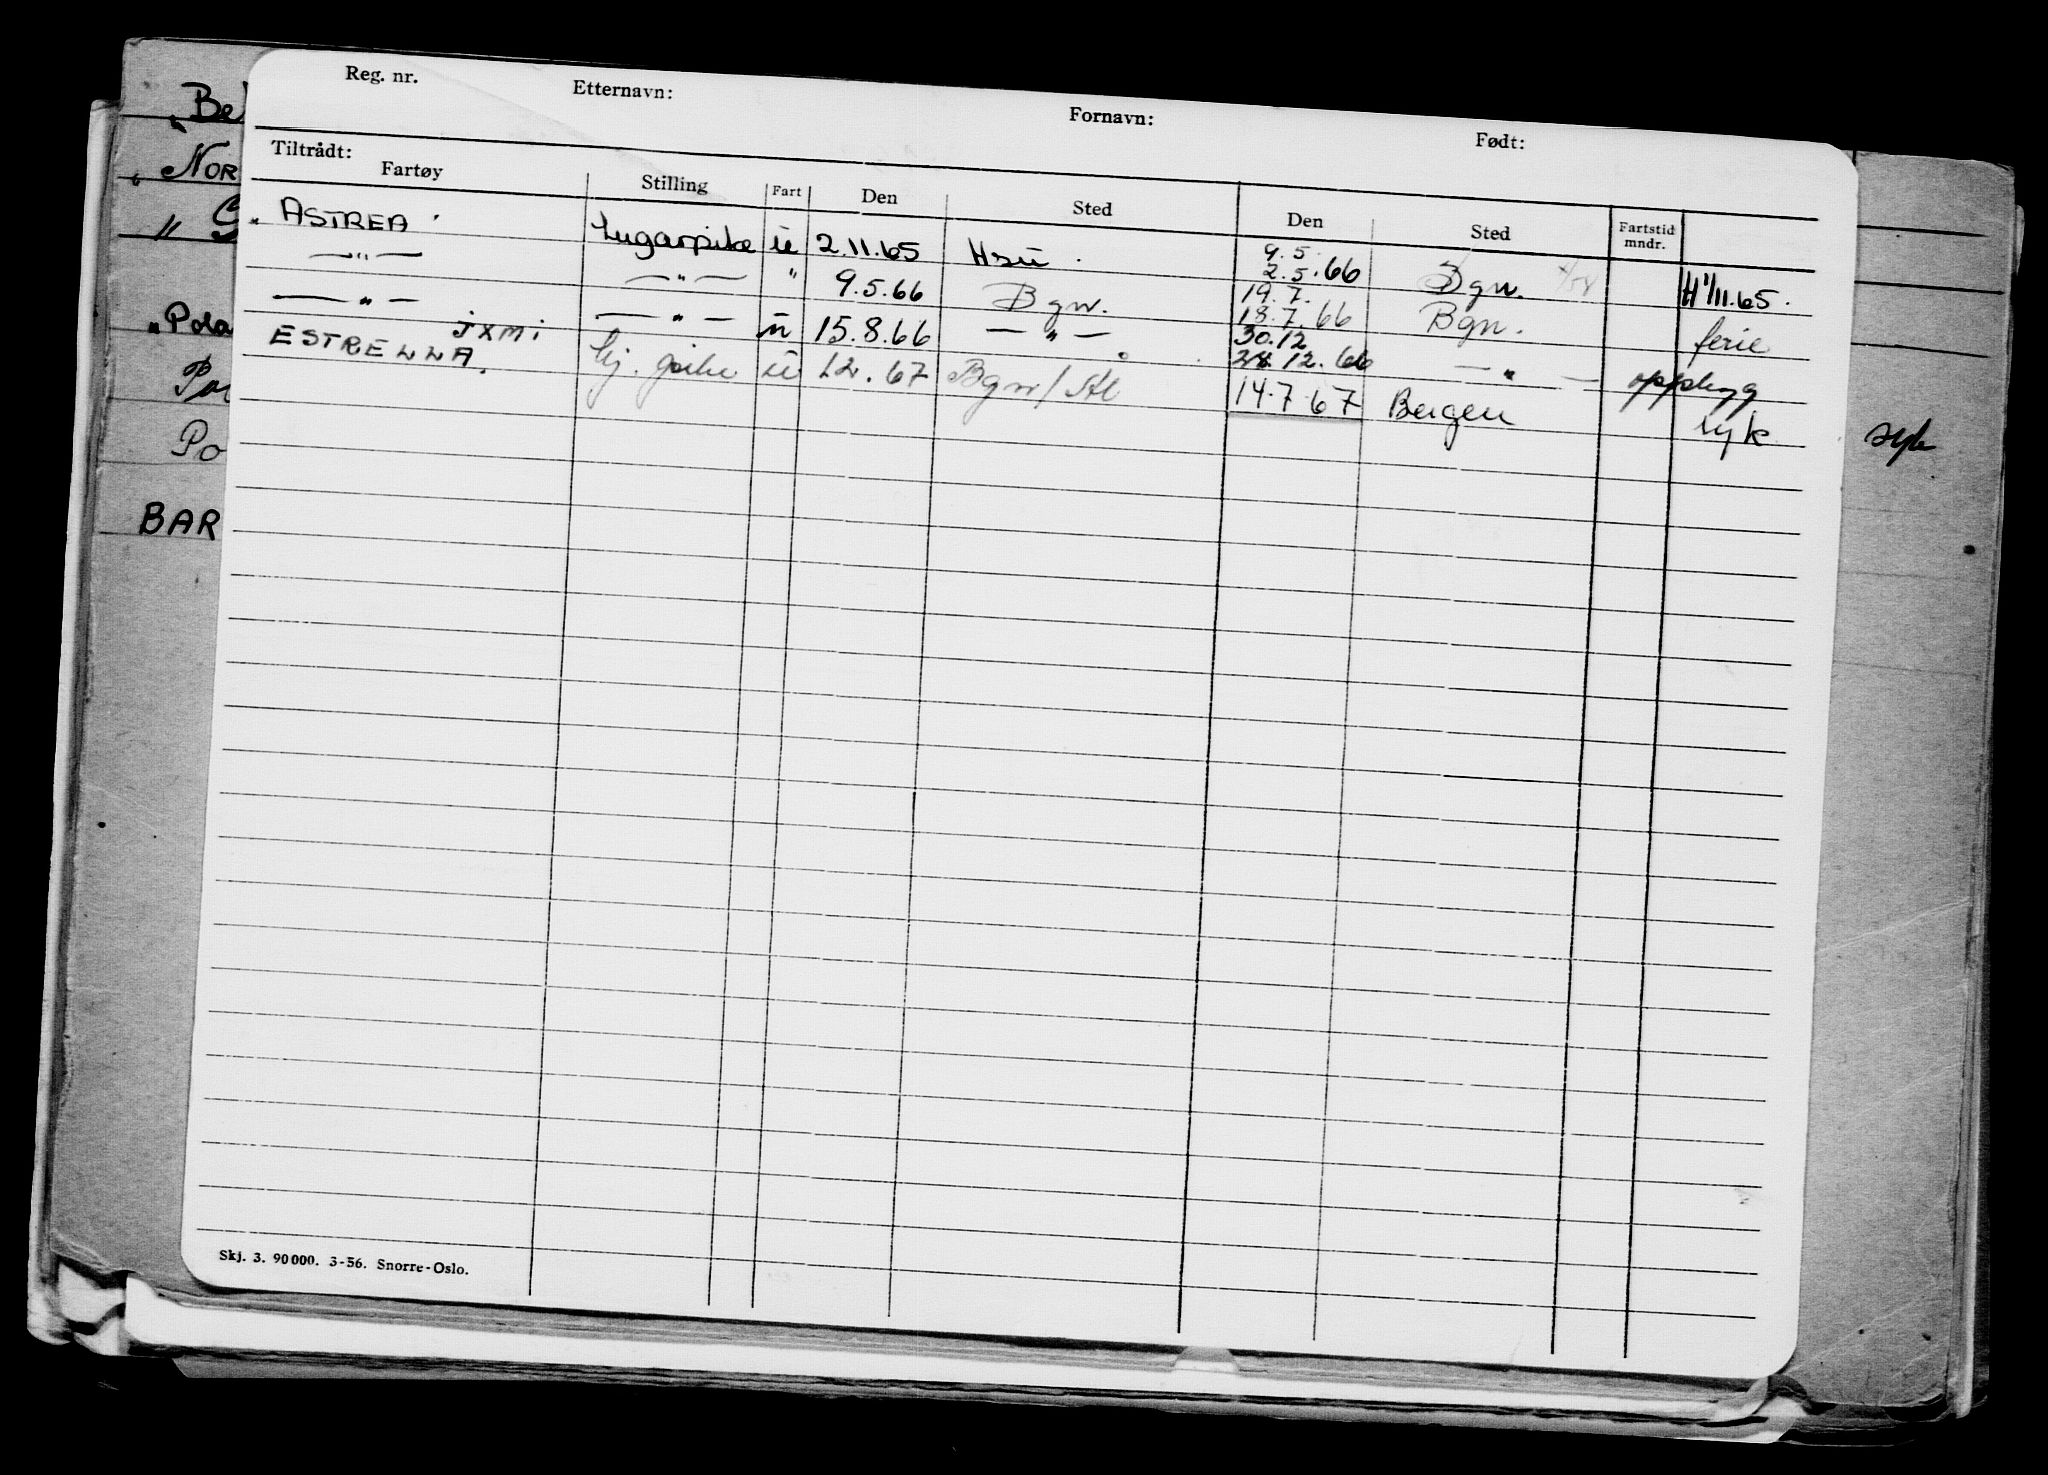 Reg. nr. Etternavn: Fornavn: Født:
Tiltrådt:
Fartøy Stilling Fart Den Sted Den Sted Fartstid mndr.
„ ASTREA " Lugarpike u 2.11.65 Hsu. 9.5. 2.5.66 Bgn. H 1/11.65.
—"— —"— " 9.5.66 Bgn. 19.7. 18.7.66 Bgn. ferie
—"— u 15.8.66 —"— 30.12 28.12.66 —"— oppbygg
JXMI
ESTRELLA. pike u 1.2.67 Bgn/ 14.7.67 Bergen syk
„Be
„NOR
"
„Pola
Po
Po
BAR
syk
Skj. 3. 90000. 3-56. Snorre-Oslo.